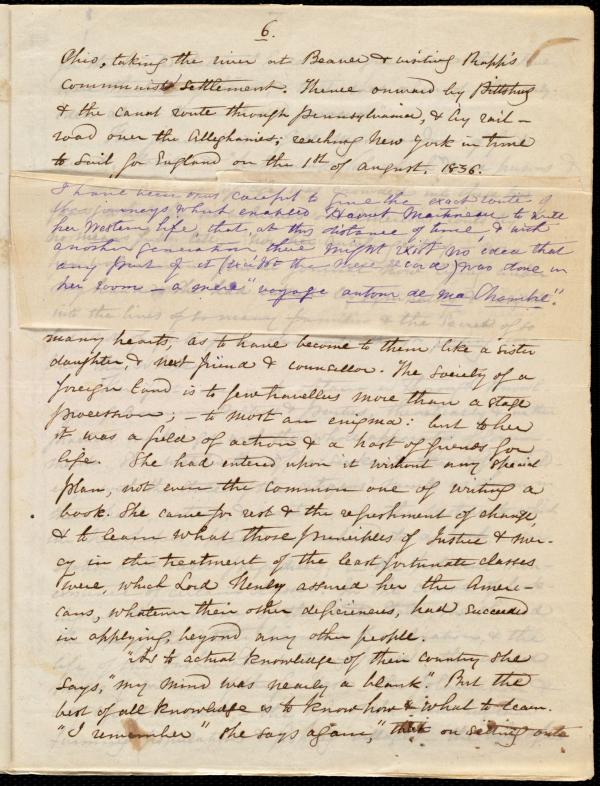 6.
Ohio, taking the river at Beaver & visiting Rapp's
Communist Settlement. Thence onward by Pittsburg
& the canal route through Pennsylvania, & by rail-
road over the Alleghanies; reaching New York in time
to sail for England on the 1st of August, 1836.
I have been thus careful to give the exact route of
the journeys which enabled Harriet Martineau to write
her Western life, that, at this distance of time, & with
another generation there might exist no idea that
any part of it (except the mere record) was done in
her room — a mere "voyage autour de ma Chambre".
into the lives of so many families & the secrets of so
many hearts, as to have become to them like a sister
daughter, & next friend & councellor. The Society of a
foreign land is to few travellers more than a stage
procession; — to most an enigma: but to her
it was a field of action & a host of friends for
life. She had entered upon it without any special
plan, not even the common one of writing a
book. She came for rest & the refreshment of change,
& to learn what those principles of Justice & mer-
cy in the treatment of the least fortunate classes
were, which Lord Henley assured her the Ameri-
cans, whatever their other deficiencies, had succeeded
in applying, beyond any other people.
"As to actual knowledge of their country she
says, "my mind was nearly a blank". But the
best of all knowledge is to know how & what to learn.
"I remember" she says again, "that on setting out